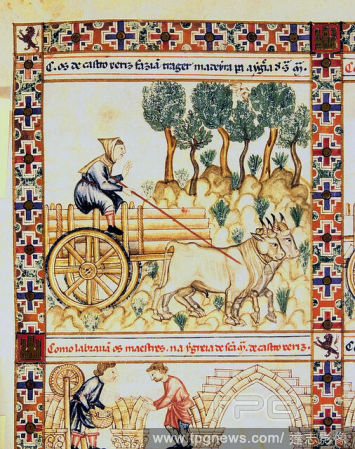 C. os de castro xeriz fazian trager madeira pa aygreia d' s. m.
Como lavravan os maestres. na ygreia de sca m. de castro xeriz.
www.tpgnews.com/ 達志影像